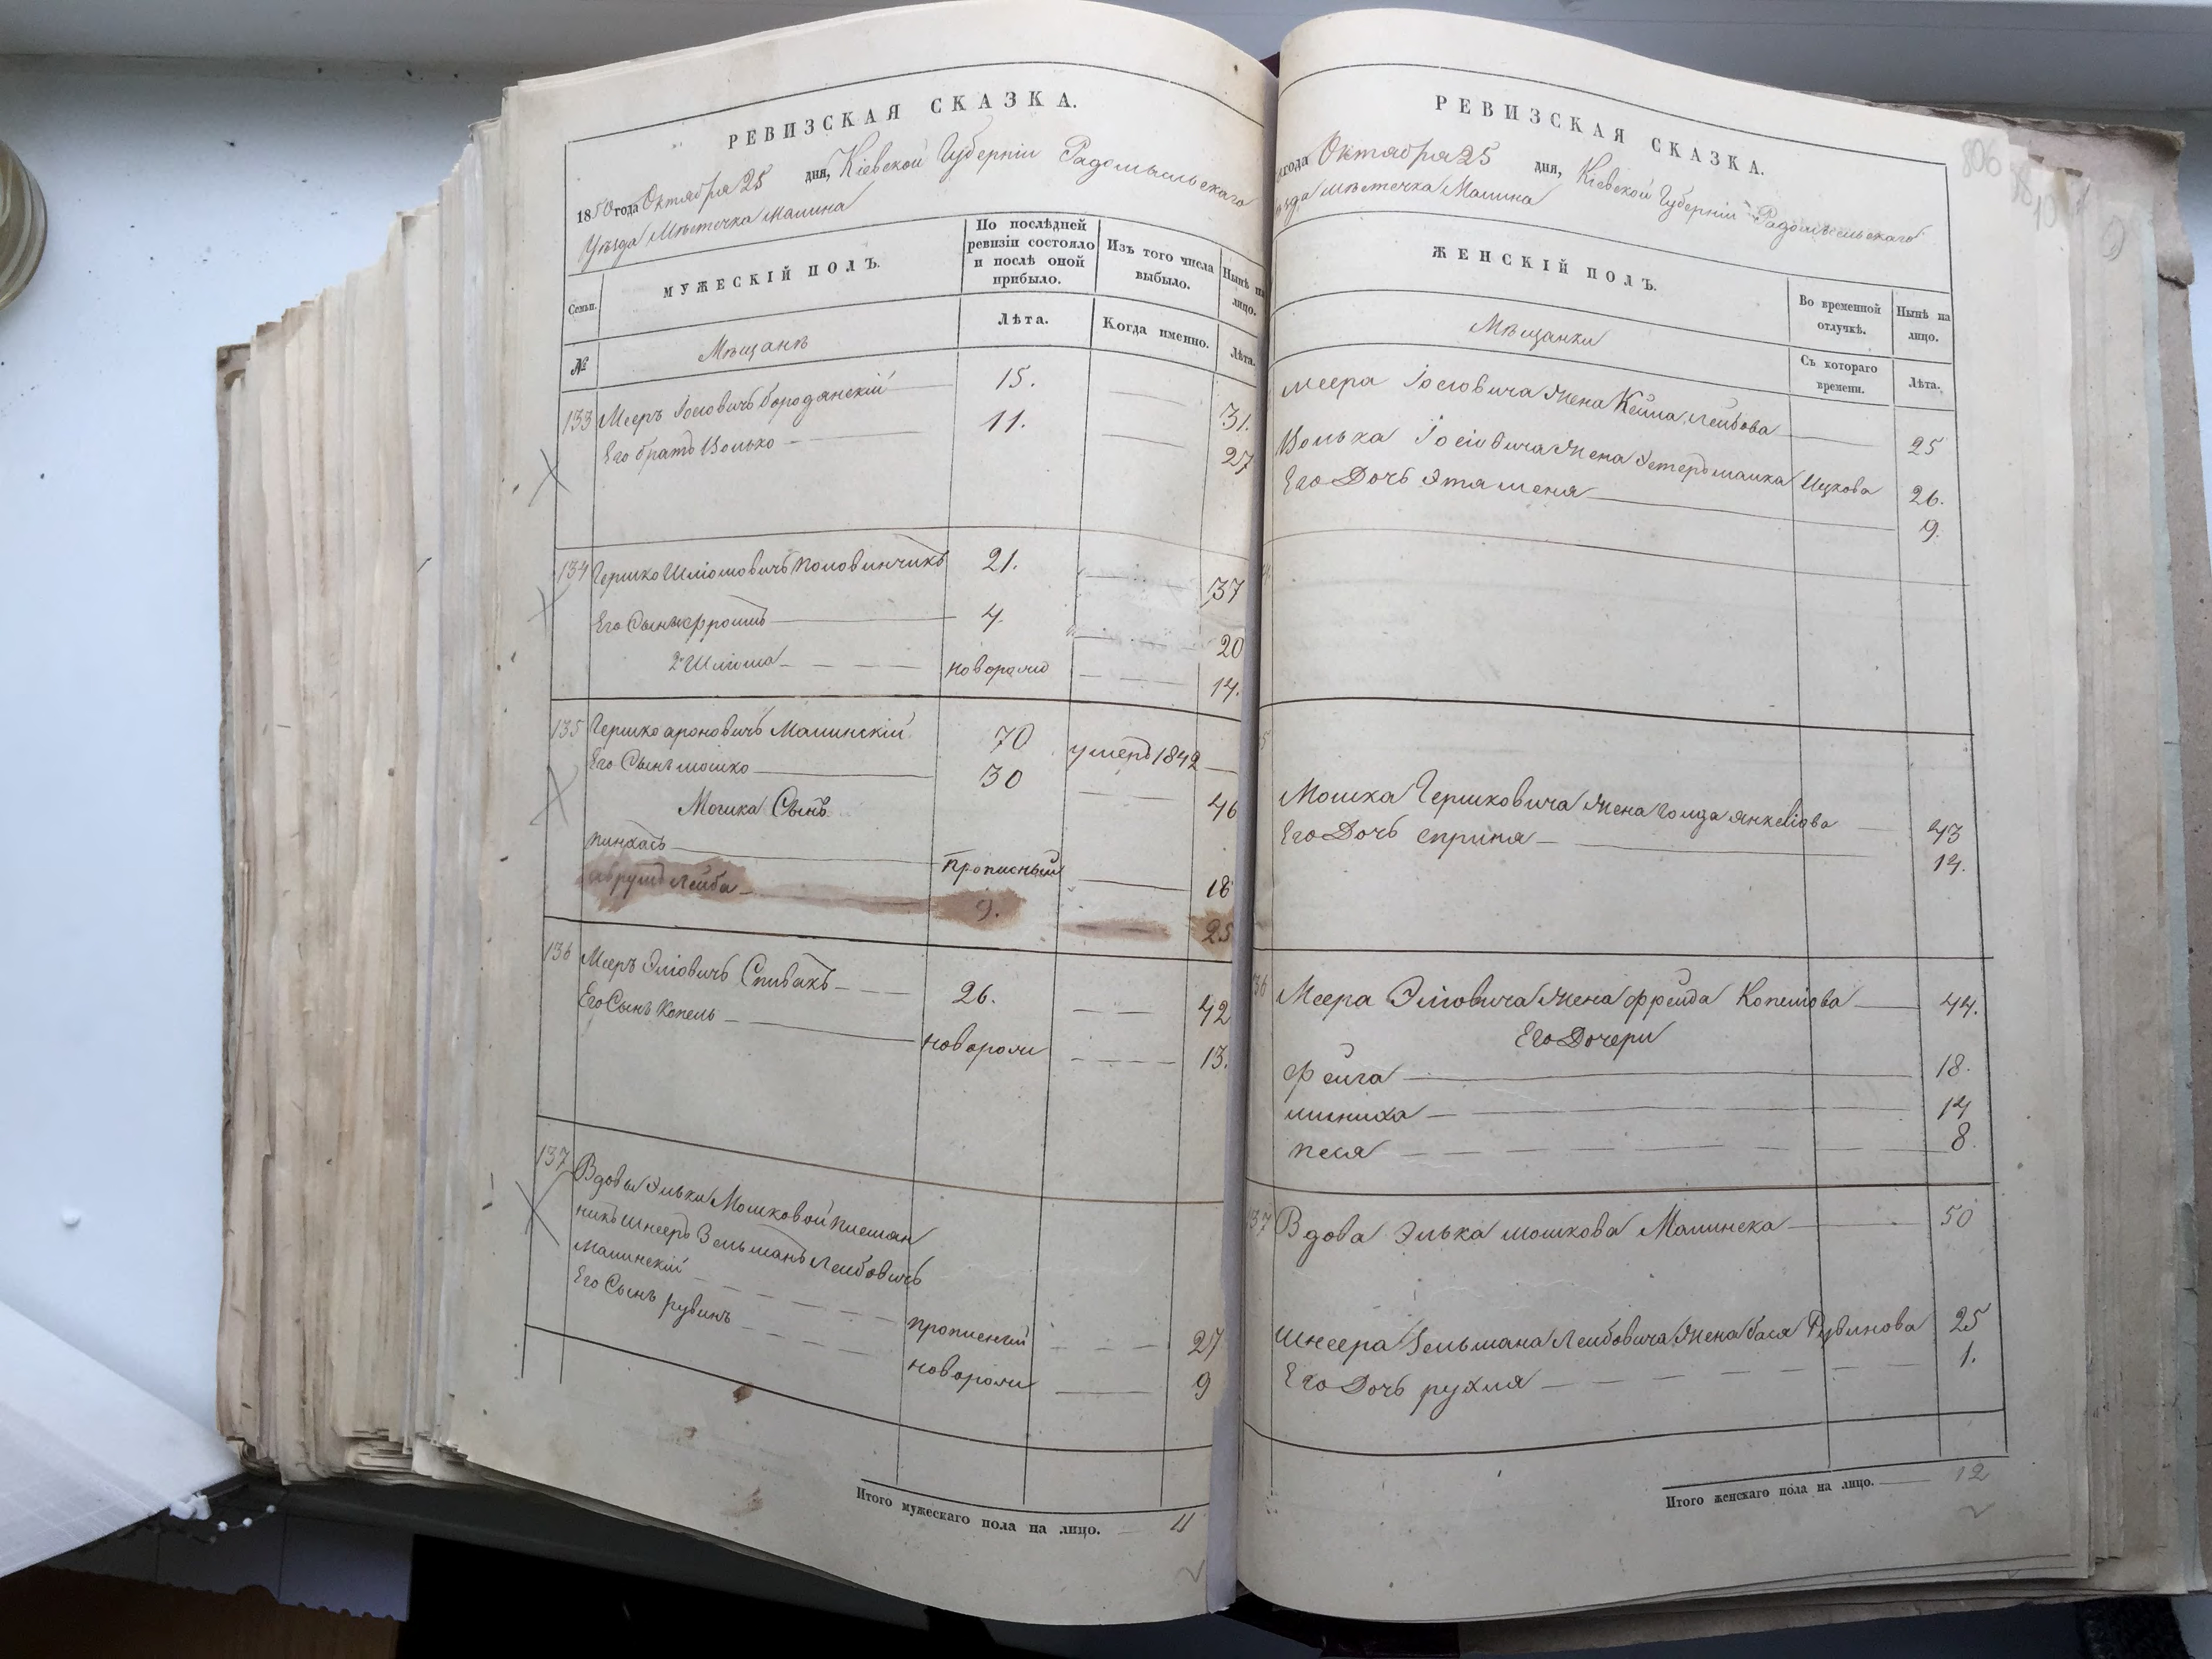 РЕВИЗСКАЯ СКАЗКА.
1850 года Октября 25 дня, Кіевской Губерніи Радомысльскаго
Уѣзда Мѣстечка Малина
Семьи.
МУЖЕСКІЙ ПОЛЪ.
По послѣдней ревизіи состояло и послѣ оной прибыло.
Изъ того числа выбыло.
Нынѣ на лицо.
№
Мѣщанѣ
Лѣта.
Когда именно.
Лѣта.
133 Мееръ Іосіовичъ Бородянскій 15. 31.
Его братъ Волько 11. 27
134 Гершко Шліомовичъ Половинчикъ 21. 37
Его Сынъ 4. 20
2й Шліома новорожд 14.
135 Гершко Ароновичъ Малинскій 70 умеръ 1842
Его Сынъ Мошко 30 46
Мошка Сынъ
Пинхасъ прописный 18
Лейба 9. 25
136 Мееръ Эліовичъ Спивакъ 26. 42
Его Сынъ Копель новорож 13.
137 Вдовы Эльки Мошковой племян
никъ Шнееръ Зельманъ Лейбовичъ
Малинскій прописный 27
Его Сынъ рувинъ новорож 9
Итого мужескаго пола на лицо. 11
РЕВИЗСКАЯ СКАЗКА.
года Октября 25 дня, Кіевской Губерніи Радомысльскаго
ѣзда Мѣстечка Малина
806
ЖЕНСКІЙ ПОЛЪ.
Во временной отлучкѣ.
Нынѣ на лицо.
Мѣщанки
Съ котораго времени.
Лѣта.
Меера Іосіовича Жена Кейла Лейбова 25
Волька Іосіовича Жена Эстеръ Малка Ицкова 26.
Его Дочь Эта 9.
Мошка Гершковича Жена Голда Янкеліова 43
Его Дочь Сприня 14.
36 Меера Эліовича Жена Фрейда Копеліова 44.
Его Дочери
Фейга 18.
14
песя 8.
137 Вдова Элька Мошкова Малинска 50
Шнеера Зельмана Лейбовича Жена Бася Рувинова 25
Его Дочь рухля 1.
Итого женскаго пола на лицо. 12